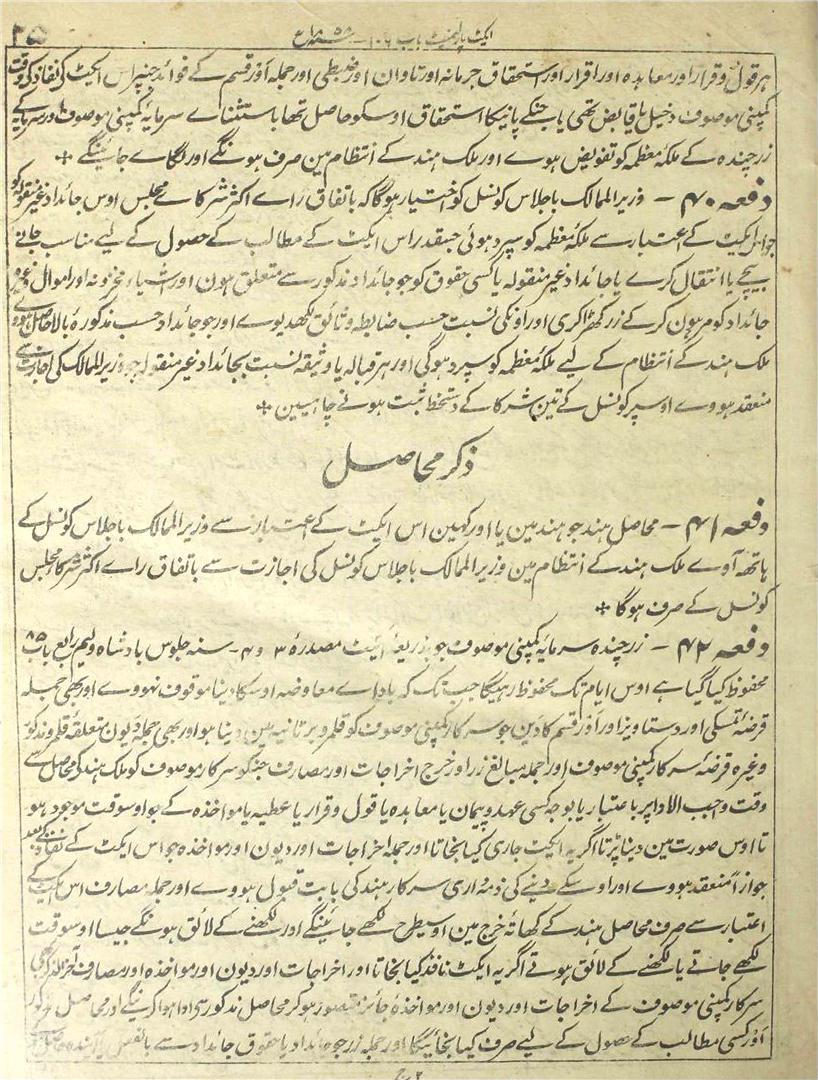 ایکٹ پارلیمنٹ باب ۱۰۶ ۱۸۵۸ع
۲۵
ہر قول و قرار اور معاہدہ اور اقرار اور استحقاق جرمانہ اور تاوان اور ضبطی اور جملہ اور قسم کے فوائد جنپر اس ایکٹ کے نفاذ کی وقت
کمپنی موصوف دخیل یا قابض تھی یا جنکے پانیکا استحقاق اوسکو حاصل تھا باستثناے سرمایۂ کمپنی موصوف اور سرمایہ کے
زر چندہ کے ملکہ معظمہ کو تفویض ہوے اور ملک ہند کے انتظام مین صرف ہونگے اور لگاے جاینگے ✣
دفعہ ۴۰ — وزیر الممالک باجلاس کونسل کو اختیار ہوگا کہ باتفاق راے اکثر شرکاے مجلس اوس جائداد غیر منقولہ کو
جو اس ایکٹ کے اعتبار سے ملکۂ معظمہ کو سپرد ہوئی جسقدر اس ایکٹ کے مطالب کے حصول کے لیے مناسب جانے
بیچے یا انتقال کرے یا جائداد غیر منقولہ یا کسی حقوق کو جو جائداد مذکور سے متعلق ہون اور اشیاء مخزونہ اور اموال وغیرہ
جائداد کو مرہون کر کے زر کھڑا کری اور اونکی نسبت حسب ضابطہ وثائق لکھدیوے اور جو جائداد حسب مذکورۂ بالا حاصل ہووے
ملک ہند کے انتظام کے لیے ملکۂ معظمہ کو سپرد ہوگی اور ہر قبالہ یا وثیقہ نسبت بجائداد غیر منقولہ جو وزیر الممالک کی اجازت سے
منعقد ہووے اوسپر کونسل کے تین شرکا کے دستخط ثبت ہونے چاہییین ✣
ذکر محاصل
دفعہ ۴۱ — محاصل ہند جو ہند مین یا اور کہین اس ایکٹ کے اعتبار سے وزیر الممالک باجلاس کونسل کے
ہاتھ آوے ملک ہند کے انتظام مین وزیر الممالک باجلاس کونسل کی اجازت سے باتفاق راے اکثر شرکاء مجلس
کونسل کے صرف ہوگا ✣
دفعہ ۴۲ — زر چندہ سرمایۂ کمپنی موصوف جو بذریعۂ ایکٹ مصدرۂ ۳ و ۴ - سنہ جلوس بادشاہ ولیم رابع باب ۸۵
محفوظ کیا گیا ہے اوس ایام تک محفوظ رہیگا جب تک کہ باداے معاوضہ اوسکا دینا موقوف نہووے اور بھی جملہ
قرضۂ تمسکی اور دستاویز اور اور قسم کا دَین جو سرکار کمپنی موصوف کو قلمرو برتانیہ مین دینا ہو اور بھی جملہ دیون متعلقۂ قلمرو مذکور
وغیرہ قرضۂ سرکار کمپنی موصوف اور جملہ مبالغ زر اور خرج اخراجات اور مصارف جنکو سرکار موصوف کو ملک ہند کی محاصل سے
وقت واجب الاداپر باعتبار یا بوجہ کسی عہد و پیمان یا معاہدہ یا قول و قرار یا عطیہ یا مواخذہ کے جو اوسوقت موجود ہو
تا اوس صورت مین دینا پڑتا اگر یہ ایکٹ جاری کیا نجاتا اور جملہ اخراجات اور دیون اور مواخذہ جو اس ایکٹ کے نفاذ کے بعد
جوازاً منعقد ہووے اور اوسکے دینے کی ذمہ داری سرکار ہند کی بابت قبول ہووے اور جملہ مصارف اس ایکٹ کے
اعتبار سے صرف محاصل ہند کے کھاتۂ خرچ مین اوسیطرح لکھے جائینگے اور لکھنے کے لائق ہونگے جیسا اوسوقت
لکھے جاتے یا لکھنے کے لائق ہوتے اگر یہ ایکٹ نافذ کیا نجاتا اور اخراجات اور دیون اور مواخذہ اور مصارف آخر الذکر بھی
سرکار کمپنی موصوف کے اخراجات اور دیون اور مواخذۂ جائز متصور ہوکر محاصل مذکور سی ادا ہوا کرینگے اور محاصل مذکور
اور کسی مطالب کے حصول کے لیے صرف کیا نجائیگا اور جملہ زر جو جائداد یا حقوق جائداد سے بالفعل یا آیندہ حاصل